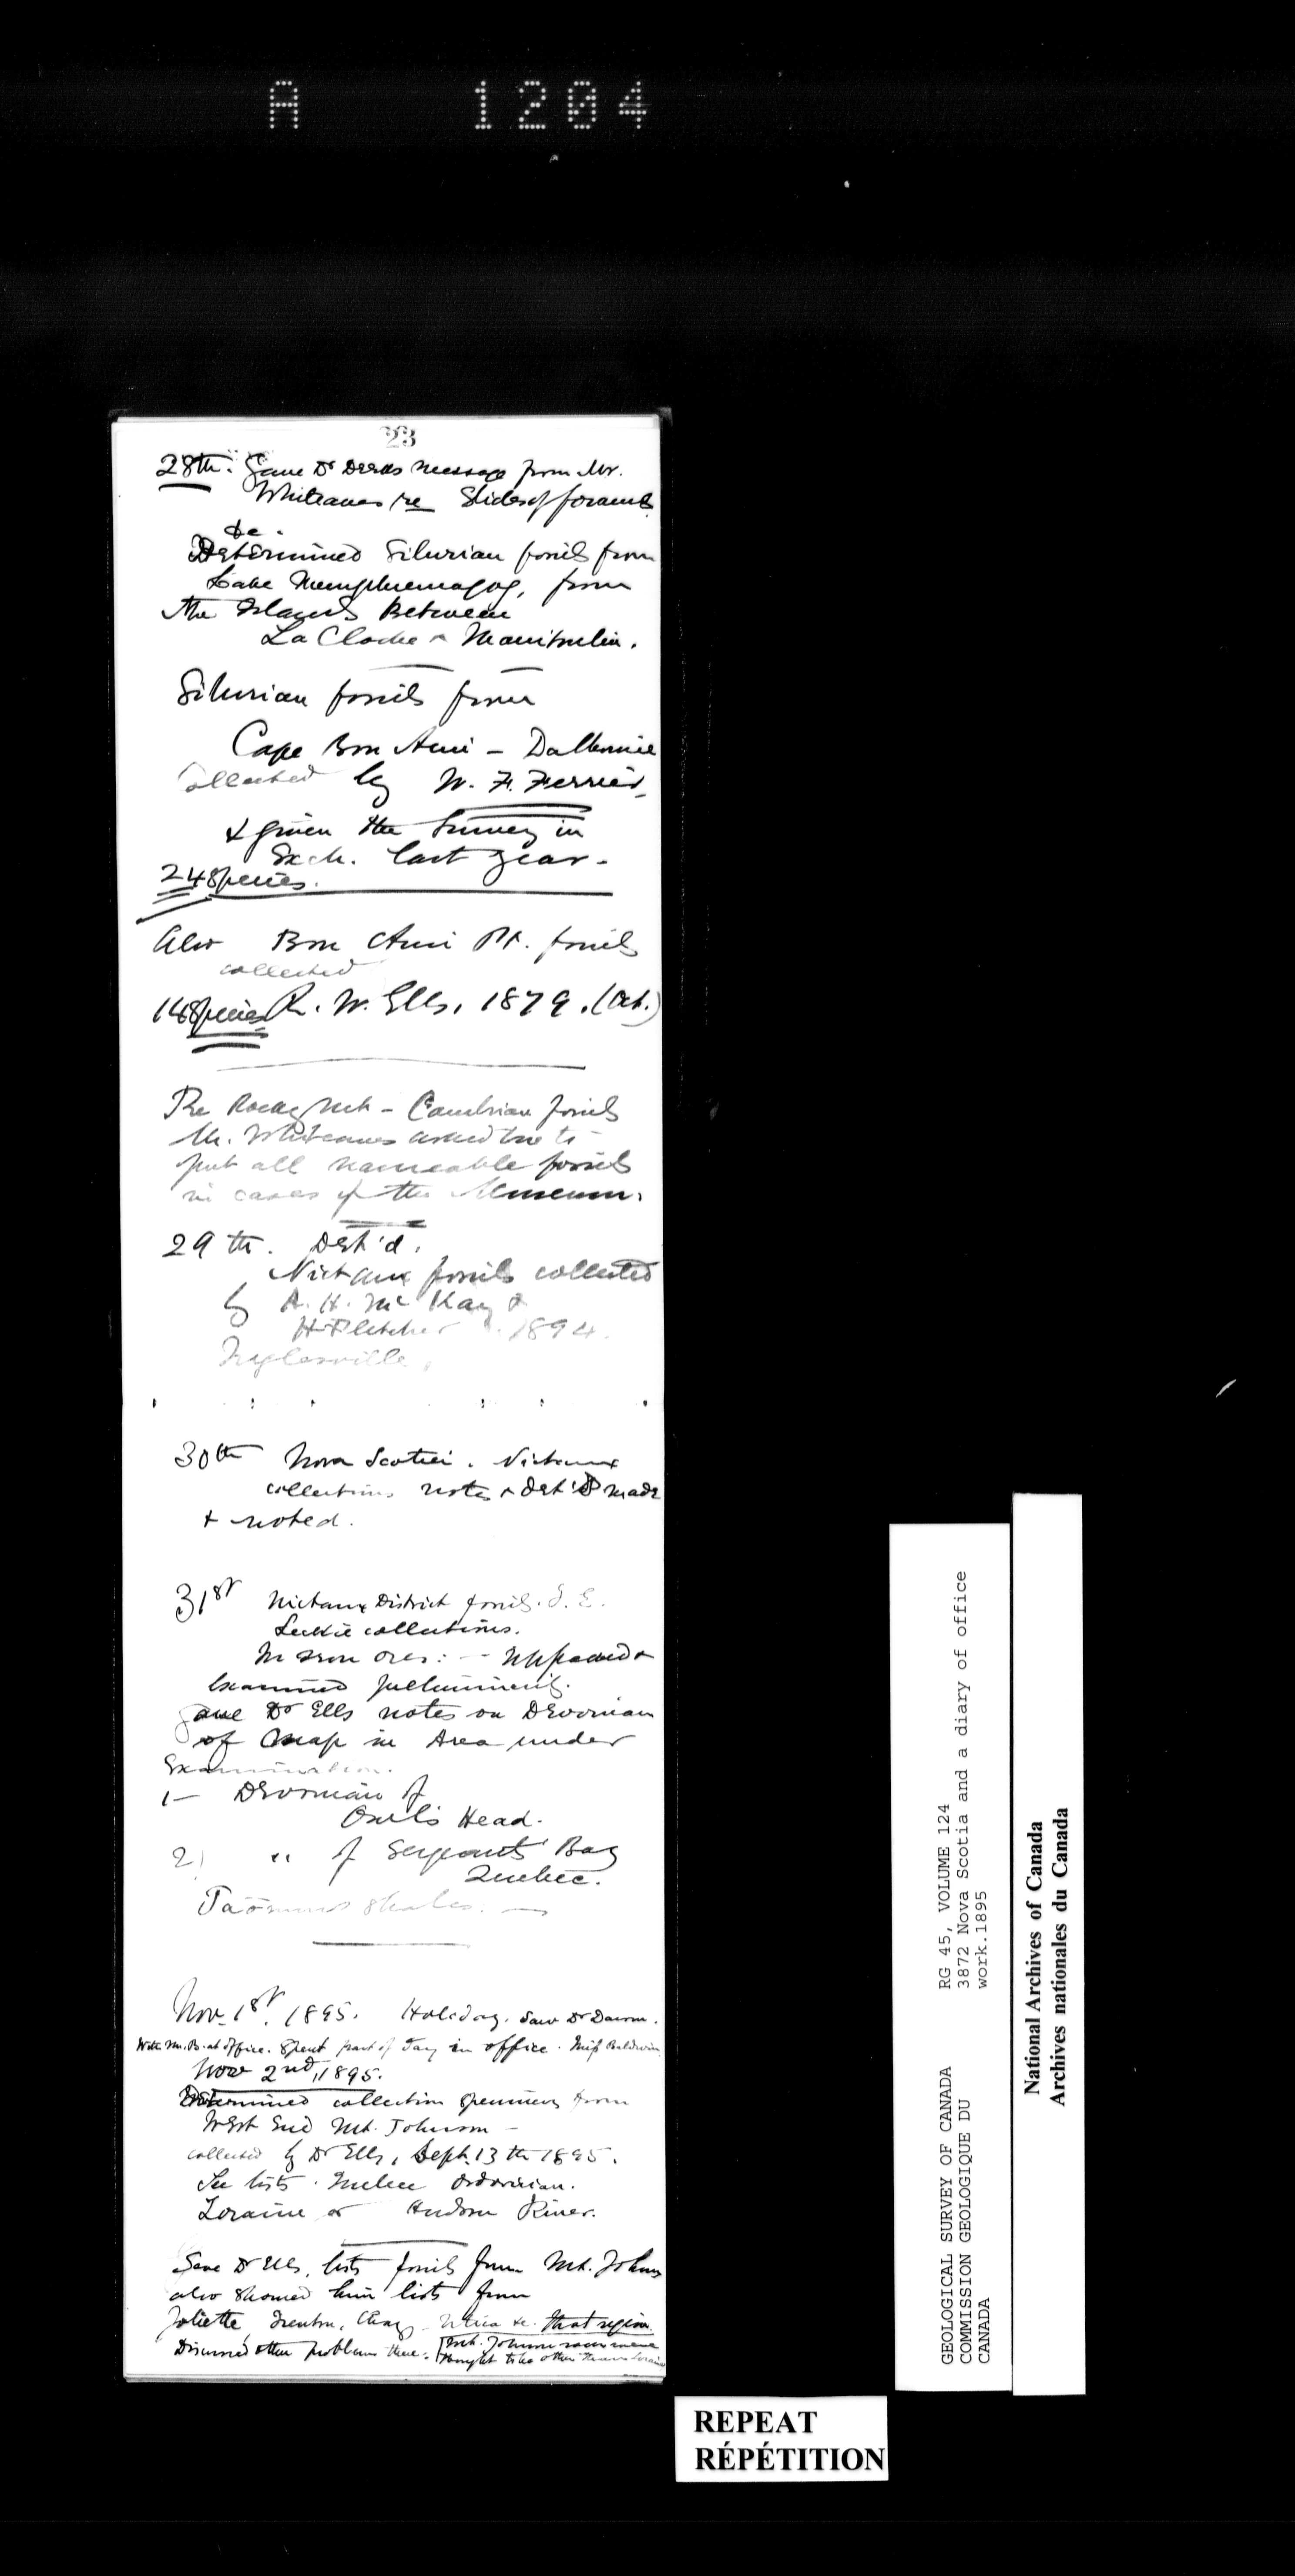 A 1204
23
28th. Gave Dr message from Mr.
Whiteaves re Slides of forams
&c.
Determined Silurian fossils from
Lake Memphremagog, from
the Islands Between
La Cloche & Manitoulin.
Silurian fossils from
Cape Bon Ami – Dalhousie
collected by W. F. Ferrier,
& given the Survey in
Exch. last year.
24 Species.
Also Bon Ami Pt. fossils
collected
14 Species R. W. Ells, 1879. (Oct.)
Re Rocky Mts – Cambrian fossils
Mr. Whiteaves asked me to
put all nameable fossils
in cases of the Museum.
29th. Det'd.
Nictaux fossils collected
by A. H. McKay &
H. Fletcher 1894.
Inglesville,
30th Nova Scotia. Nictaux
collections notes & det'd made
& noted.
31st Nictaux District fossils.
Leckie collections.
In iron ores: – Unpacked &
Examined
Gave Dr Ells notes on Devonian
of map in Area under
Examination.
1 – Devonian of
Owl's Head.
2) " of Sergeants' Bay
Quebec.
shales. —
Nov. 1st, 1895. Holiday. Saw Dr Dawson.
With Mr. B. at office. Spent part of Day in office. Miss Baldwin
Nov 2nd, 1895.
Determined collection specimens from
West End Mt. Johnson –
collected by Dr Ells, Sept. 13th 1895.
See lists. Quebec Ordovician.
Loraine or Hudson River.
Gave Dr Ells, lists fossils from Mt. Johnson
also showed him lists from
Joliette, Trenton, Chazy – Utica &c. that region.
Discussed other problems there. [Mt. Johnson
thought to be other than Loraine
GEOLOGICAL SURVEY OF CANADA
COMMISSION GEOLOGIQUE DU
CANADA
RG 45, VOLUME 124
3872 Nova Scotia and a diary of office
work.1895
National Archives of Canada
Archives nationales du Canada
REPEAT
RÉPÉTITION